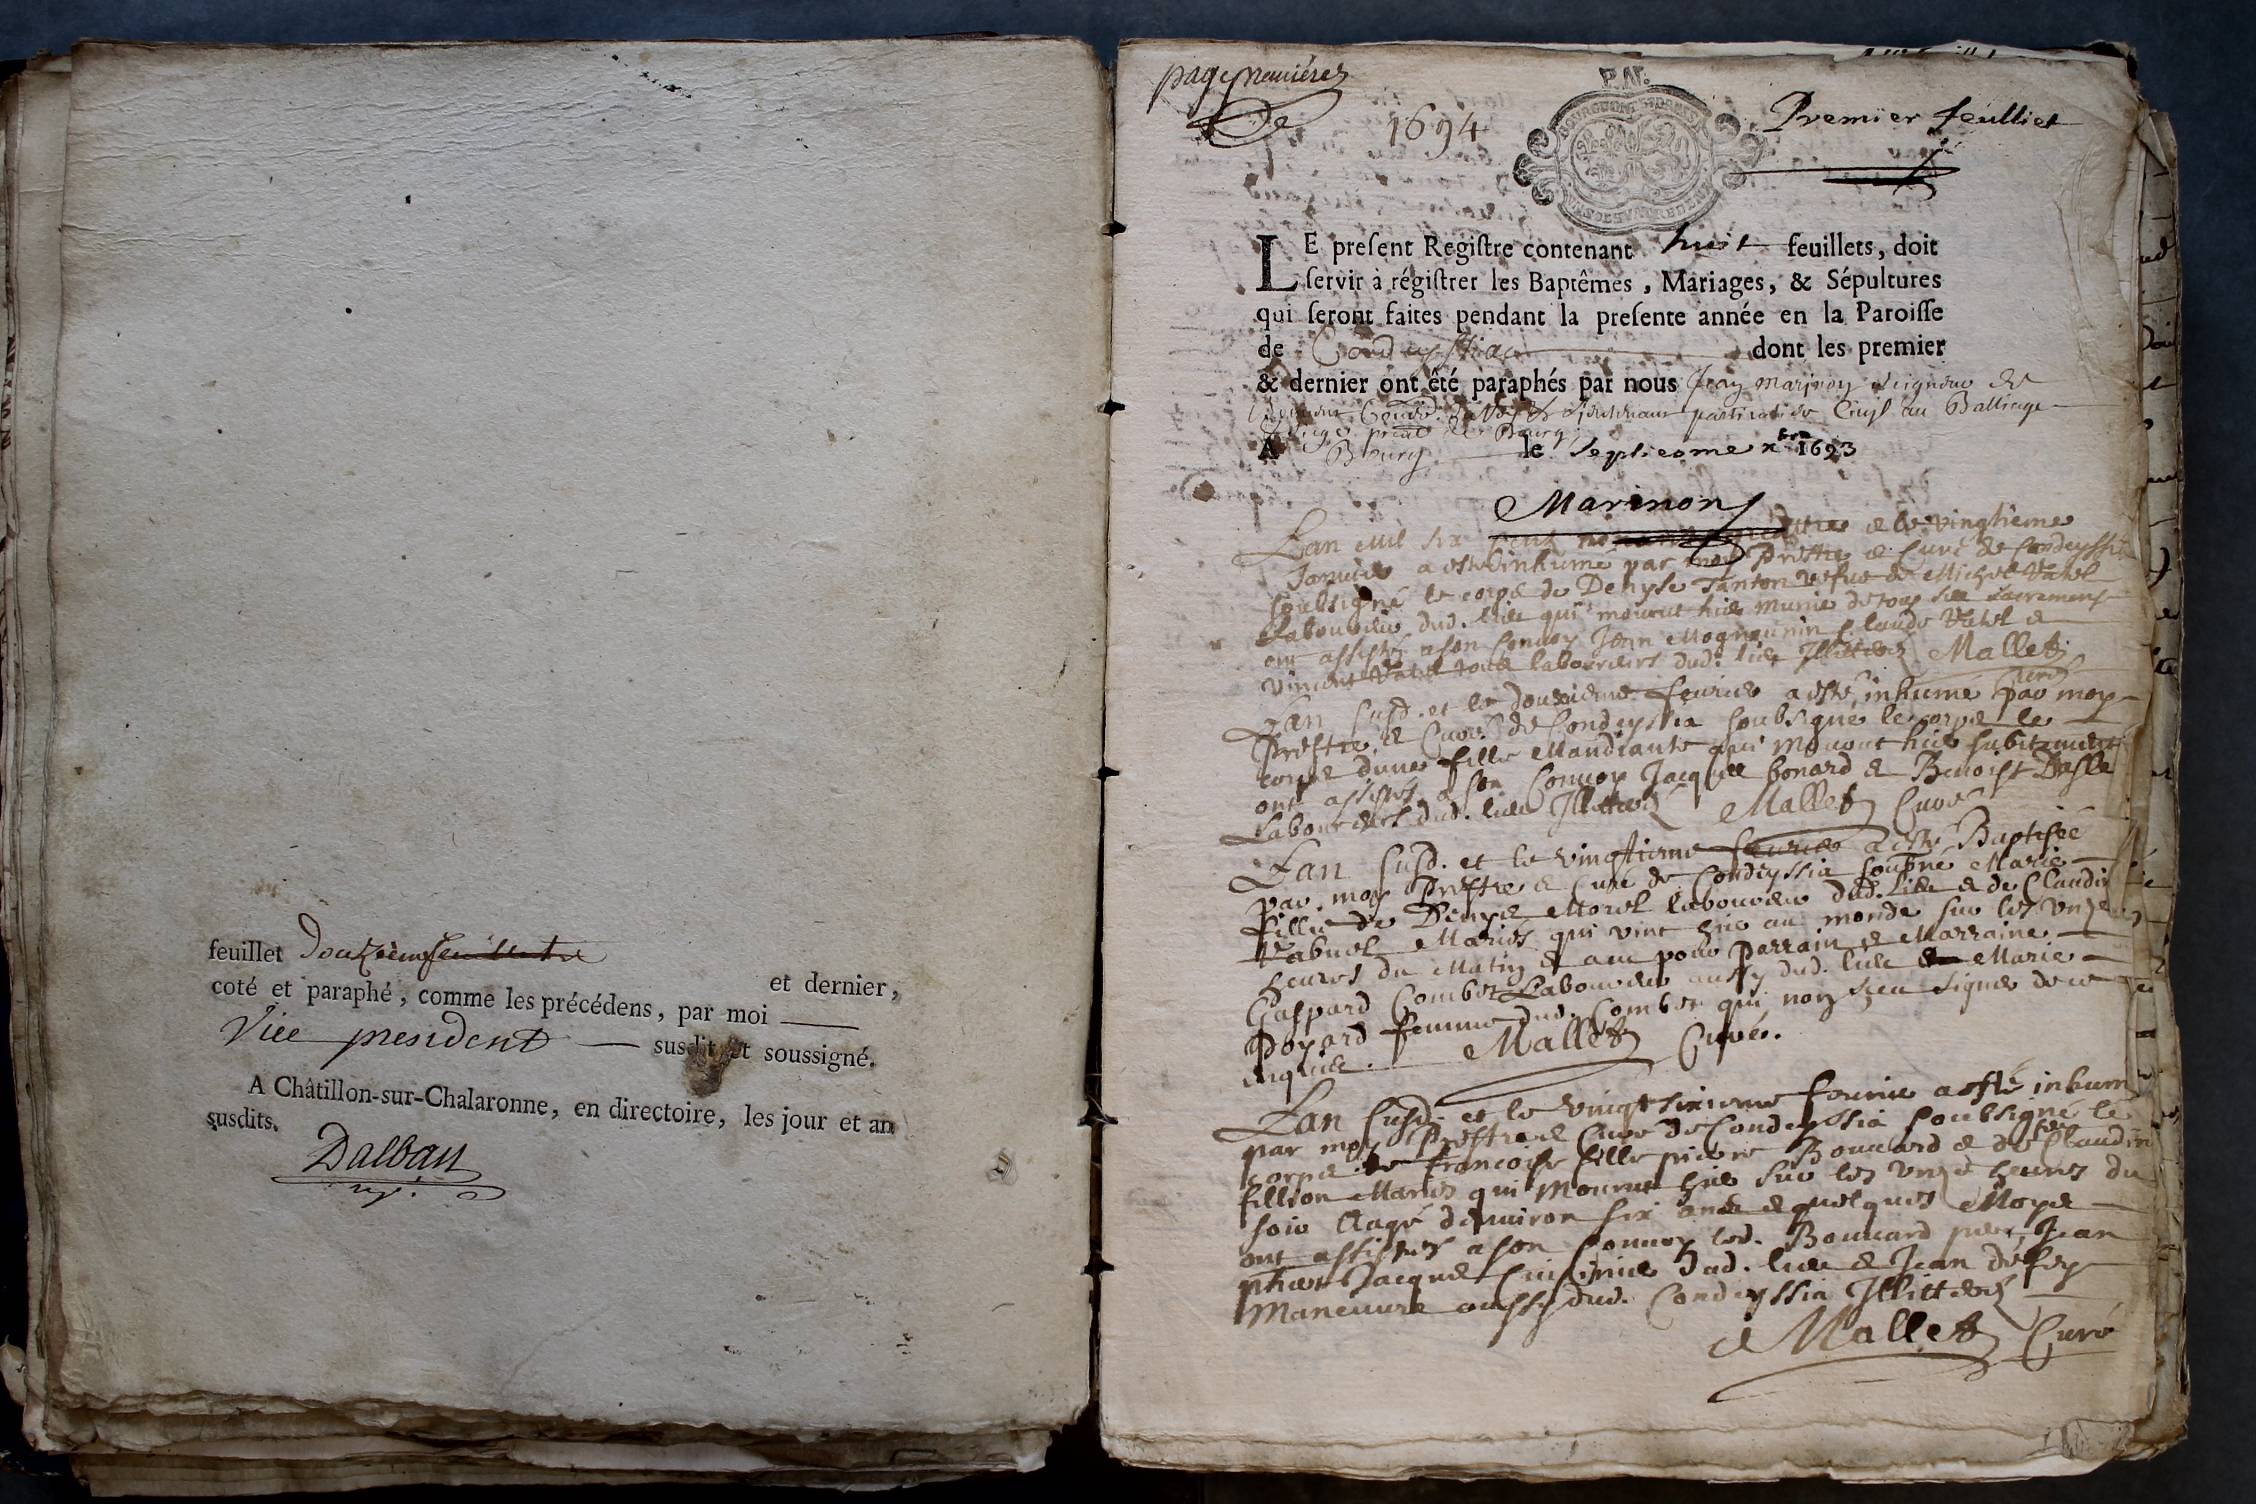 feuillet douzième
et dernier,
coté et paraphé, comme les précédens, par moi
Vice president susdit et soussigné.
A Châtillon-sur-Chalaronne, en directoire, les jour et an
susdits.
Dalban
page premiére
De
1694
P.N.
Premier feulliet
LE preſent Regiſtre contenant huit feuillets, doit
ſervir à régiſtrer les Baptêmes, Mariages, & Sépultures
qui ſeront faites pendant la preſente année en la Paroiſſe
de Condeyssia dont les premier
& dernier ont êté paraphés par nous Jean Marinon seigneur de
lieutenant particulier Civil au Balliage
de Bourg
A Bourg le septiesme xbre 1693
Marinon
Lan Mil six cent et le vingtieme
Janvier a esté inhume par moy Prestre & Curé de Condeyssia
soubsigné le corps de Denyse Tanton vefue de Michel Vatel
Laboureur dud. lieu qui mourut hier munie de tous ses sacrements
ont assisté a son Convoy Jean Mognounin Claude Vatel &
Vincent Vatel tous laboureurs dud. lieu Illitterés Mallet
Curé
Lan susd. et le douzieme feurier a esté inhumé par moy
Prestre & Curé de Condeyssia soubsigné le corps le
corps dune fille Mandiante qui Mourut hier subitement
ont assistés a son Convoy Jacques bonard & Benoist
Laboureurs dud. lieu Illitterés Mallet Curé
Lan susd. et le vingtieme feurier a esté Baptisée
par moy Prestre & Curé de Condeyssia soubné Marie
fille de Denys Morel laboureur dud. Lieu & de Claudine
Vabuel Mariés qui vint hier au monde sur les unze
heures du Matin & a eu pour Parrain & Marraine
Gaspard Combet Laboureur aussy dud. lieu & Marie
Poyard femme dud. Combet qui nont sceu signer de ce
enquis. Mallet Curé.
Lan susd. et le vingtsixieme feurier a esté inhum
par moy Prestre & Curé de Condeyssia soubsigné le
corps de francoise fille pierre Bouuard & de Claudin
fillion Mariés qui Mourut hier sur les unze heures du
soir Aagé denuiron six ans & quelques Moys
ont assistés a son Conuoy led. Bouuard pere, Jean
Jacques Cuisinier dud. lieu & Jean défey
Maneuure aussy dud. Condeyssia Illitterés
Mallet Curé
1